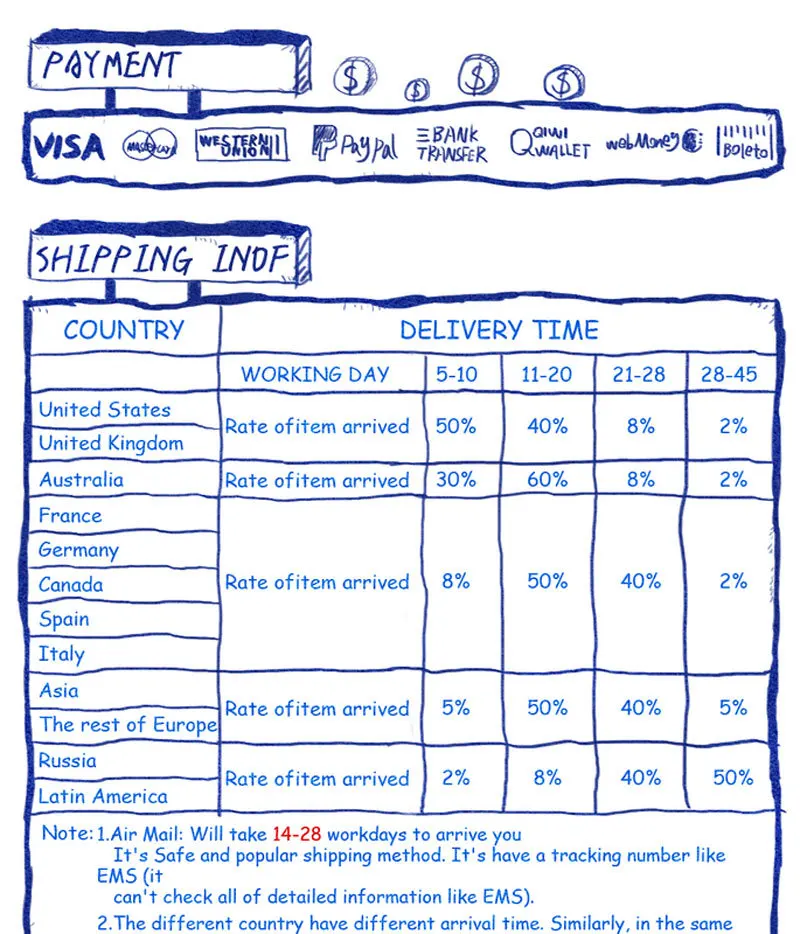 PAYMENT
VISA MasterCard WESTERN UNION PayPal BANK TRANSFER QIWI WALLET webMoney Boleto
SHIPPING INOF
COUNTRY DELIVERY TIME
WORKING DAY 5-10 11-20 21-28 28-45
United States
Rate ofitem arrived 50% 40% 8% 2%
United Kingdom
Australia Rate ofitem arrived 30% 60% 8% 2%
France
Germany
Canada Rate ofitem arrived 8% 50% 40% 2%
Spain
Italy
Asia
Rate ofitem arrived 5% 50% 40% 5%
The rest of Europe
Russia
Rate ofitem arrived 2% 8% 40% 50%
Latin America
Note: 1.Air Mail: Will take 14-28 workdays to arrive you
It's Safe and popular shipping method. It's have a tracking number like
EMS (it
can't check all of detailed information like EMS).
2.The different country have different arrival time. Similarly, in the same